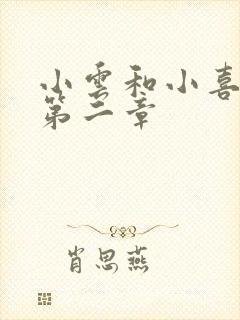 小雲和小喜
第二章
肖思燕